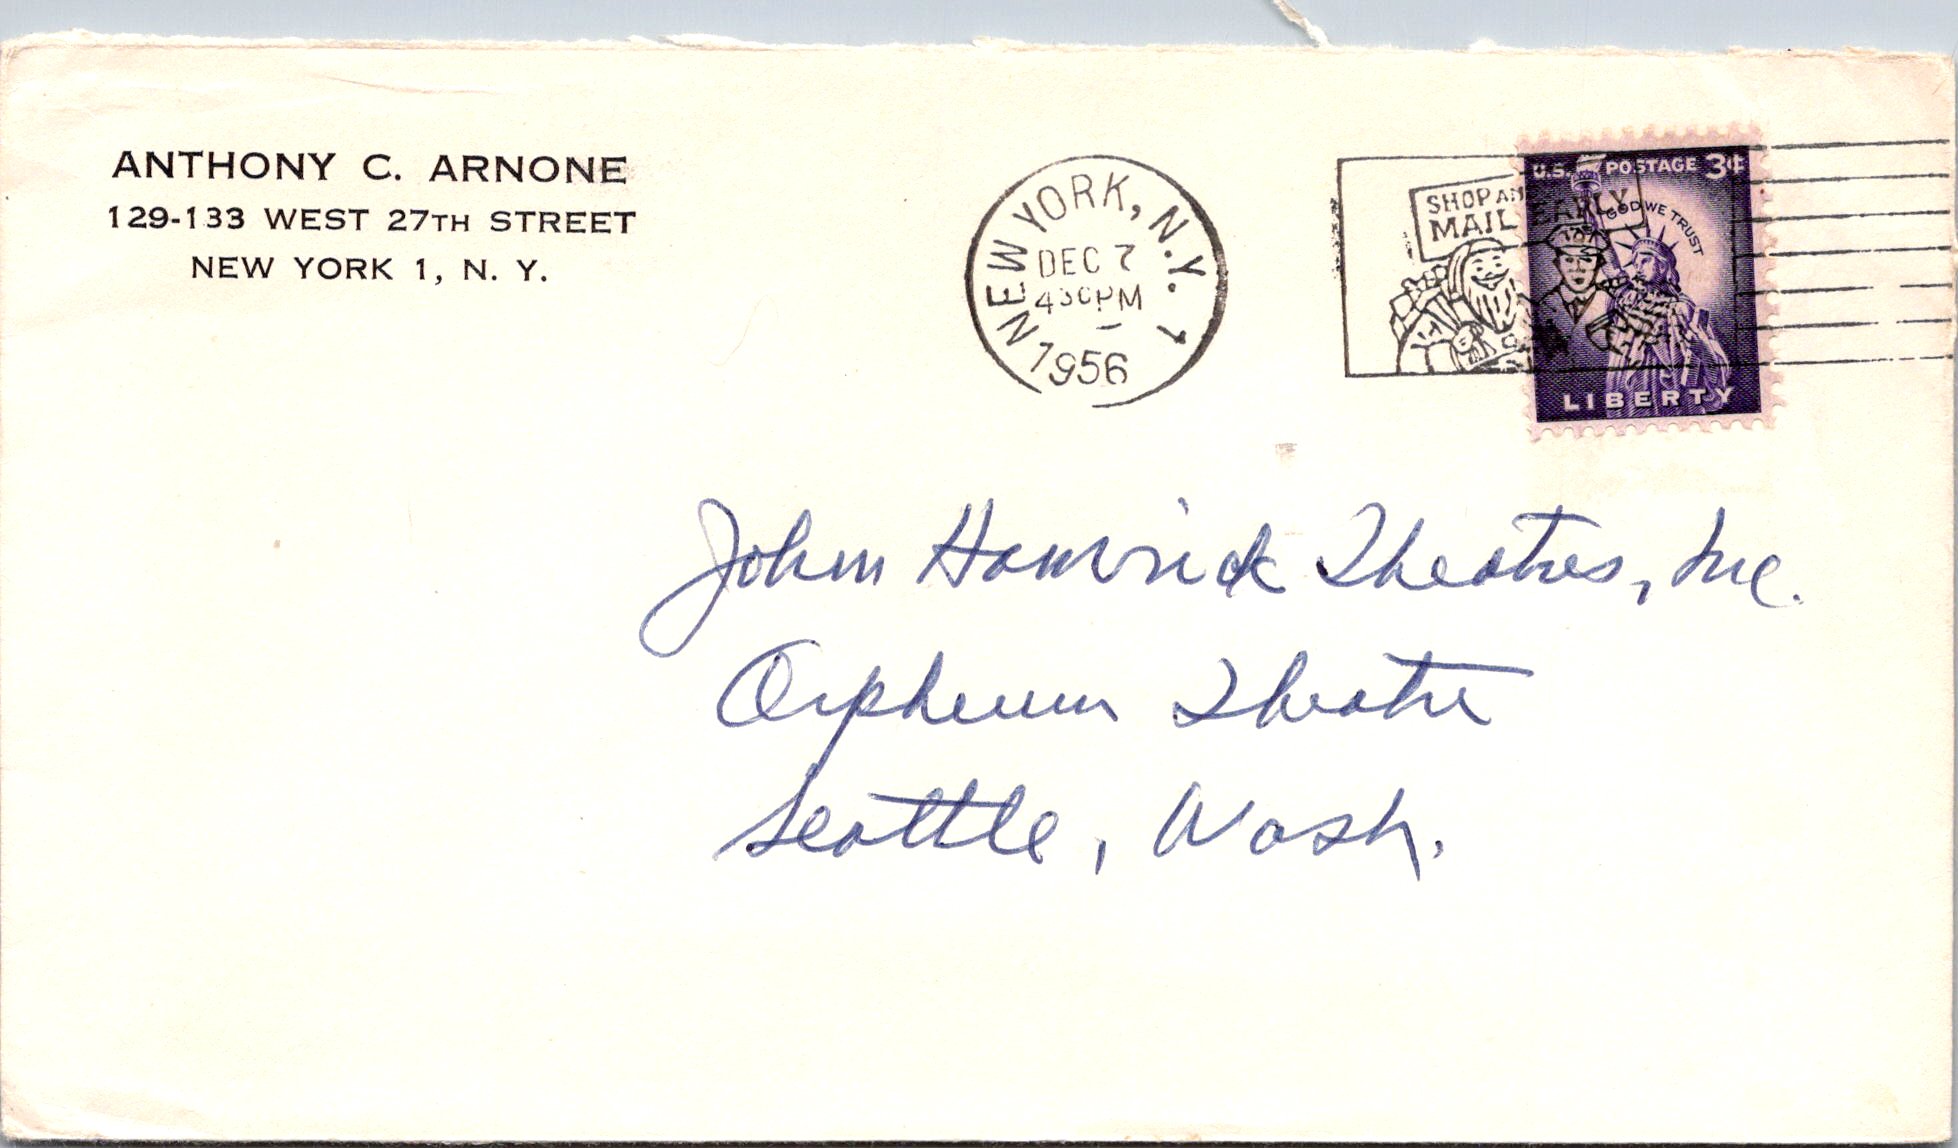 ANTHONY C. ARNONE
129-133 WEST 27TH STREET
NEW YORK 1, N. Y.
NEW YORK, N.Y. 1
DEC 7
430PM
1956
SHOP AND
MAIL EARLY
U.S. POSTAGE 3¢
GOD WE TRUST
LIBERTY
John Hamrick Theatres, Inc.
Orpheum Theatre
Seattle, Wash.